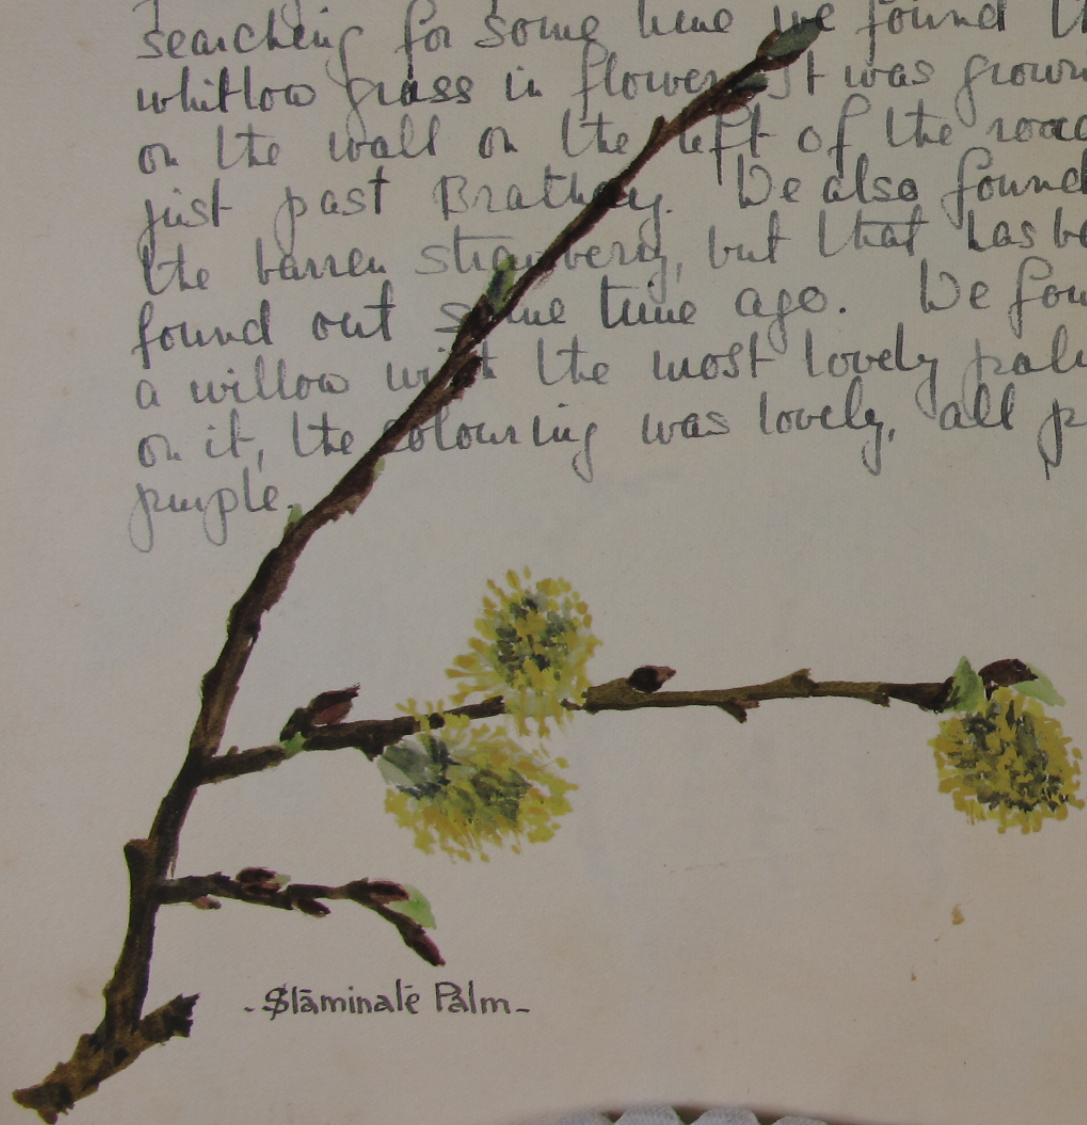 searching for some time we found th
whitlow grass in flower. It was growin
on the wall on the left of the road
just past Brathay. We also found
the barren strawberry, but that has be
found out some time ago. We fou
a willow with the most lovely palm
on it, the colouring was lovely, all p
purple.
- Staminate Palm -